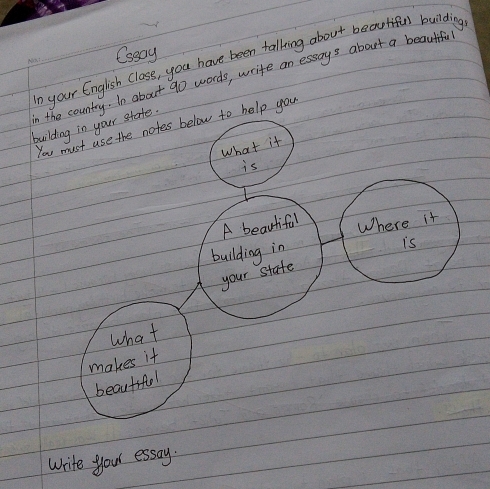 Essay
In your English Class, you have been talking about beautiful buildings
in the country. In about 90 words, write an essays about a beautiful
building in your state.
You must use the notes below to help you
What it
is
A beautiful
building in
your state
Where it
is
What
makes it
beautiful
Write your essay.